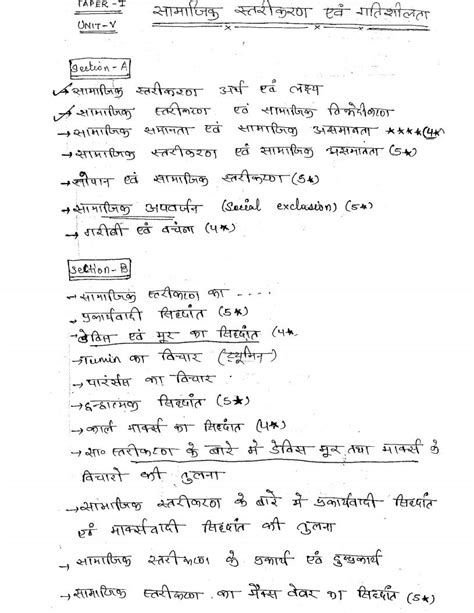 PAPER - I
UNIT-V
सामाजिक स्तरीकरण एवं गतिशीलता
Section-A
सामाजिक स्तरीकरण अर्थ एवं लक्ष्य
सामाजिक स्तरीकरण एवं सामाजिक विभेदीकरण
→ सामाजिक समानता एवं सामाजिक असमानता ★★★★(4★
→ सामाजिक स्तरीकरण एवं सामाजिक असमानता (5★)
→ सोपान एवं सामाजिक स्तरीकरण (5★)
→ सामाजिक अपवर्जन (Social exclusion) (5★)
→ गरीबी एवं वंचना (4★)
Section-B
→ सामाजिक स्तरीकरण का ....
→ प्रकार्यवादी सिद्धांत (5★)
→ डेविस एवं मूर का सिद्धांत (4★
→ Tumin का विचार (ट्यूमिन)
→ पारंसस का विचार
→ द्वन्दात्मक सिद्धांत (5★)
→ कार्ल मार्क्स का सिद्धांत (4★)
→ सा० स्तरीकरण के बारे में डेविस मूर तथा मार्क्स के
विचारो की तुलना
→ सामाजिक स्तरीकरण के बारे में प्रकार्यवादी सिद्धांत
एवं मार्क्सवादी सिद्धांत की तुलना
→ सामाजिक स्तरीकरण के प्रकार्य एवं दुष्प्रकार्य
→ सामाजिक स्तरीकरण का मैक्स वेबर का सिद्धांत (5★)